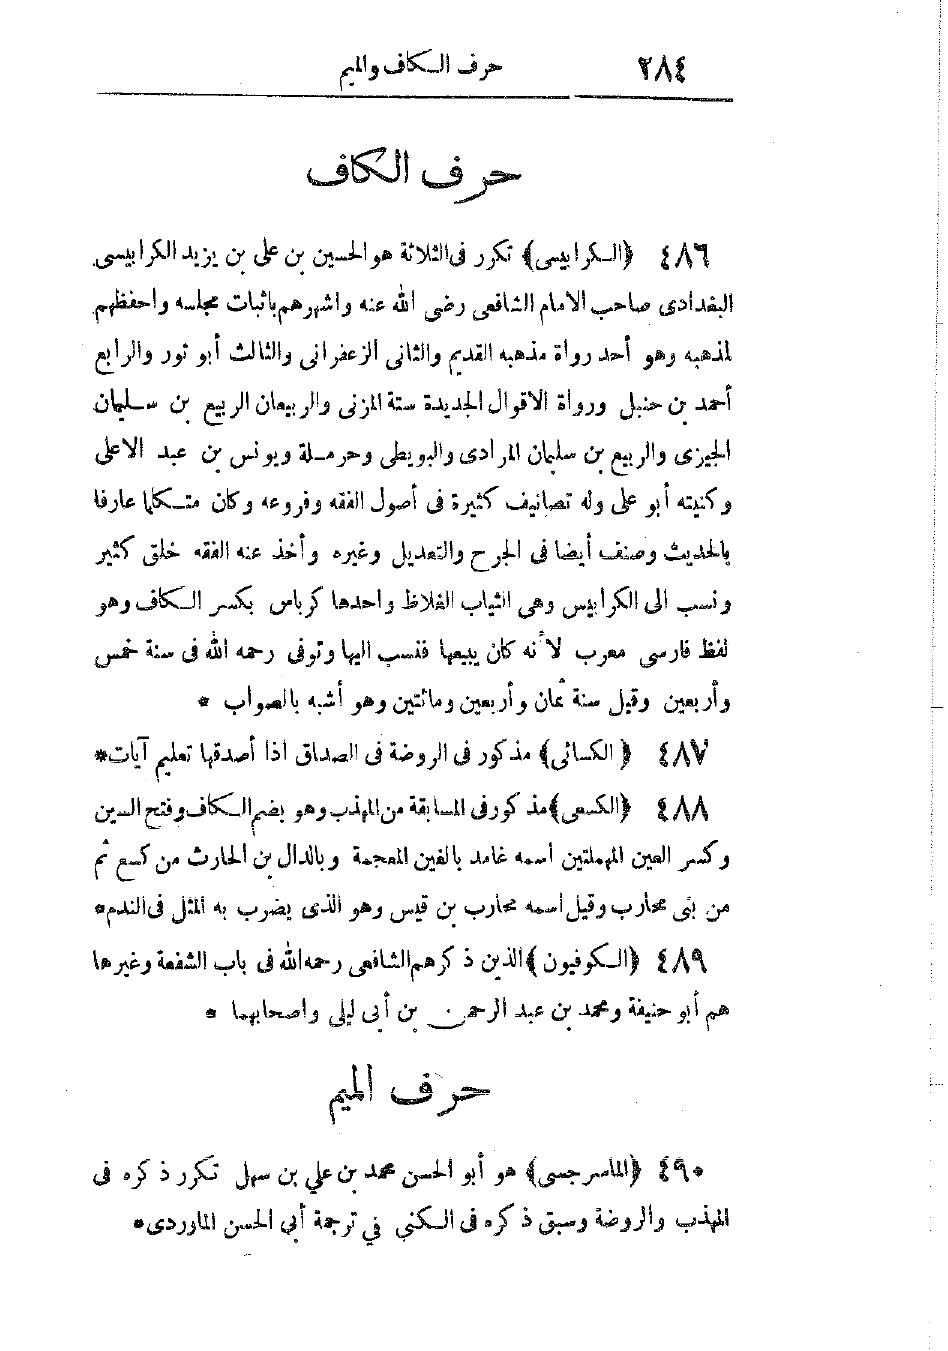 ٢٨٤ حرف الكاف والميم
حرف الكاف
٤٨٦ ﴿الكرابيسى﴾ تكرر فى الثلاثة هو الحسين بن على بن يزيد الكرابيسى
البغدادى صاحب الامام الشافعى رضى الله عنه واشهرهم باثبات مجلسه واحفظهم
لمذهبه وهو أحد رواة مذهبه القديم والثانى الزعفرانى والثالث أبو ثور والرابع
أحمد بن حنبل ورواة الاقوال الجديدة ستة المزنى والربيعان الربيع بن سليمان
الجيزى والربيع بن سليمان المرادى والبويطى وحرملة ويونس بن عبد الاعلى
وكنيته أبو على وله تصانيف كثيرة فى أصول الفقه وفروعه وكان متكلما عارفا
بالحديث وصنف أيضا فى الجرح والتعديل وغيره وأخذ عنه الفقه خلق كثير
ونسب الى الكرابيس وهى الثياب الغلاظ واحدها كرباس بكسر الكاف وهو
لفظ فارسى معرب لأنه كان يبيعها فنسب اليها وتوفى رحمه الله فى سنة خمس
وأربعين وقيل سنة ثمان وأربعين ومائتين وهو أشبه بالصواب *
٤٨٧ ﴿الكسائى﴾ مذكور فى الروضة فى الصداق اذا أصدقها تعليم آيات*
٤٨٨ ﴿الكسعى﴾ مذكور فى المسابقة من المهذب وهو بضم الكاف وفتح السين
وكسر العين المهملتين اسمه غامد بالغين المعجمة وبالدال بن الحارث من كسع ثم
من بنى محارب وقيل اسمه محارب بن قيس وهو الذى يضرب به المثل فى الندم*
٤٨٩ ﴿الكوفيون﴾ الذين ذكرهم الشافعى رحمه الله فى باب الشفعة وغيرها
هم أبو حنيفة ومحمد بن عبد الرحمن بن أبى ليلى واصحابهما *
حرف الميم
٤٩٠ ﴿الماسرجسى﴾ هو أبو الحسن محمد بن علي بن سهل تكرر ذكره فى
المهذب والروضة وسبق ذكره فى الكنى في ترجمة أبى الحسن الماوردى*